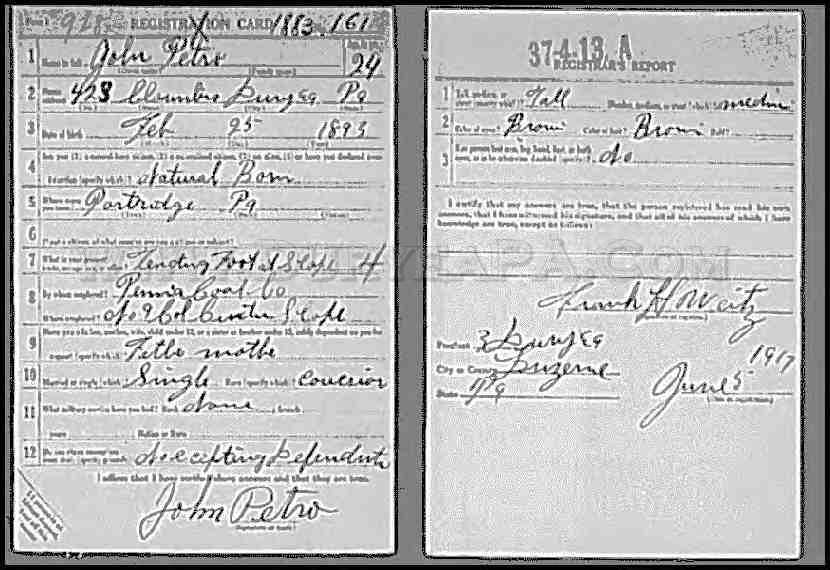 Form 1 928 REGISTRATION CARD 1883 161
1 Name in full John Petro Age, in yrs. 24
(Given name) (Family name)
2 Home address 423 Cloumbus Duryea Pa
3 Date of birth Feb 25 1893
4 Are you (1) a natural-born citizen, (2) a naturalized citizen, (3) an alien, (4) or have you declared your
intention (specify which)? Natural Born
5 Where were you born? Partridge Pa
6
If not a citizen, of what country are you a citizen or subject?
7 What is your present trade, occupation, or office? Tending Foot of Slope 4
8 By whom employed? Penna Coal Co
Where employed? No 9 Slope
9 Have you a father, mother, wife, child under 12, or a sister or brother under 12, solely dependent on you for
support (specify which)? mothe
10 Married or single (which)? Single Race (specify which)?
11 What military service have you had? Rank None ; branch
years Nation or State
12 Do you claim exemption from draft (specify grounds)?
I affirm that I have verified above answers and that they are true.
John Petro
(Signature or mark)
37-4-13. A
REGISTRAR'S REPORT
1 Tall, medium, or short (specify which)? Tall Slender, medium, or stout (which)?
2 Color of eyes? Brown Color of hair? Brown Bald?
3 Has person lost arm, leg, hand, foot, or both
eyes, or is he otherwise disabled (specify)? No
I certify that my answers are true, that the person registered has read his own
answers, that I have witnessed his signature, and that all of his answers of which I have
knowledge are true, except as follows:
Frank H Weitz
(Signature of registrar)
Precinct 3 Duryea
City or County Luzerne
State Pa
June 5 1917
(Date of registration)